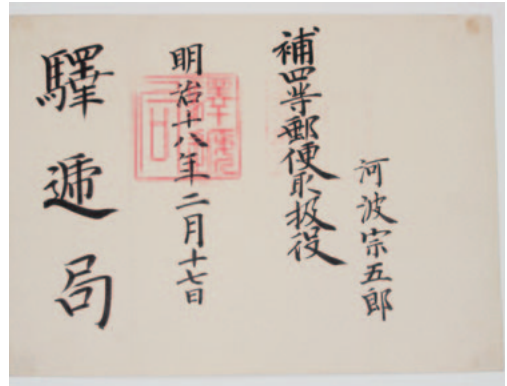 河波宗五郎
補四等郵便取扱役
明治十八年二月十七日
驛遞局